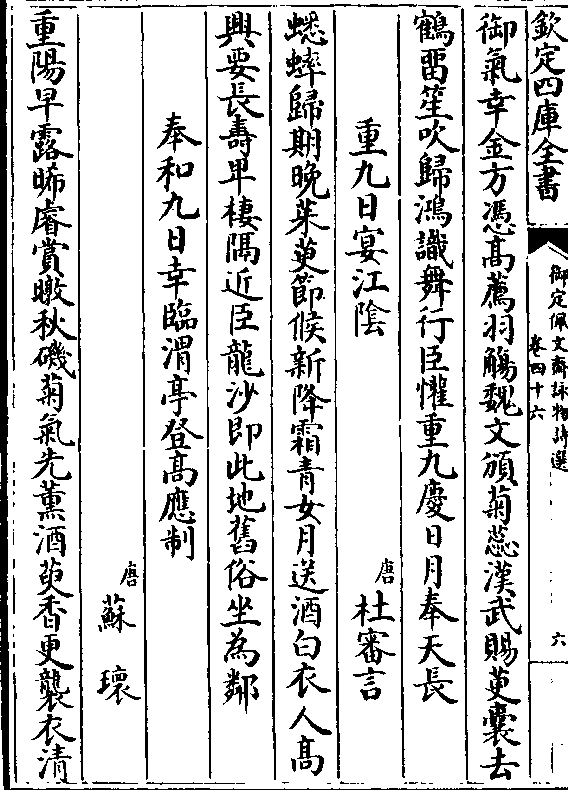 欽定四庫全書
御定佩文齋詠物詩選
卷四十六
六
御氣幸金方憑髙薦羽觴魏文頒菊蕊漢武賜萸囊去
鶴留笙吹歸鴻識舞行臣懽重九慶日月奉天長
重九日宴江隂
唐杜審言
蟋蟀歸期晚茱萸節候新降霜青女月送酒白衣人髙
興要長壽卑棲隔近臣龍沙即此地舊俗坐為鄰
奉和九日幸臨渭亭登髙應制
唐蘇瓌
重陽早露晞睿賞瞰秋磯菊氣先薰酒萸香更襲衣清